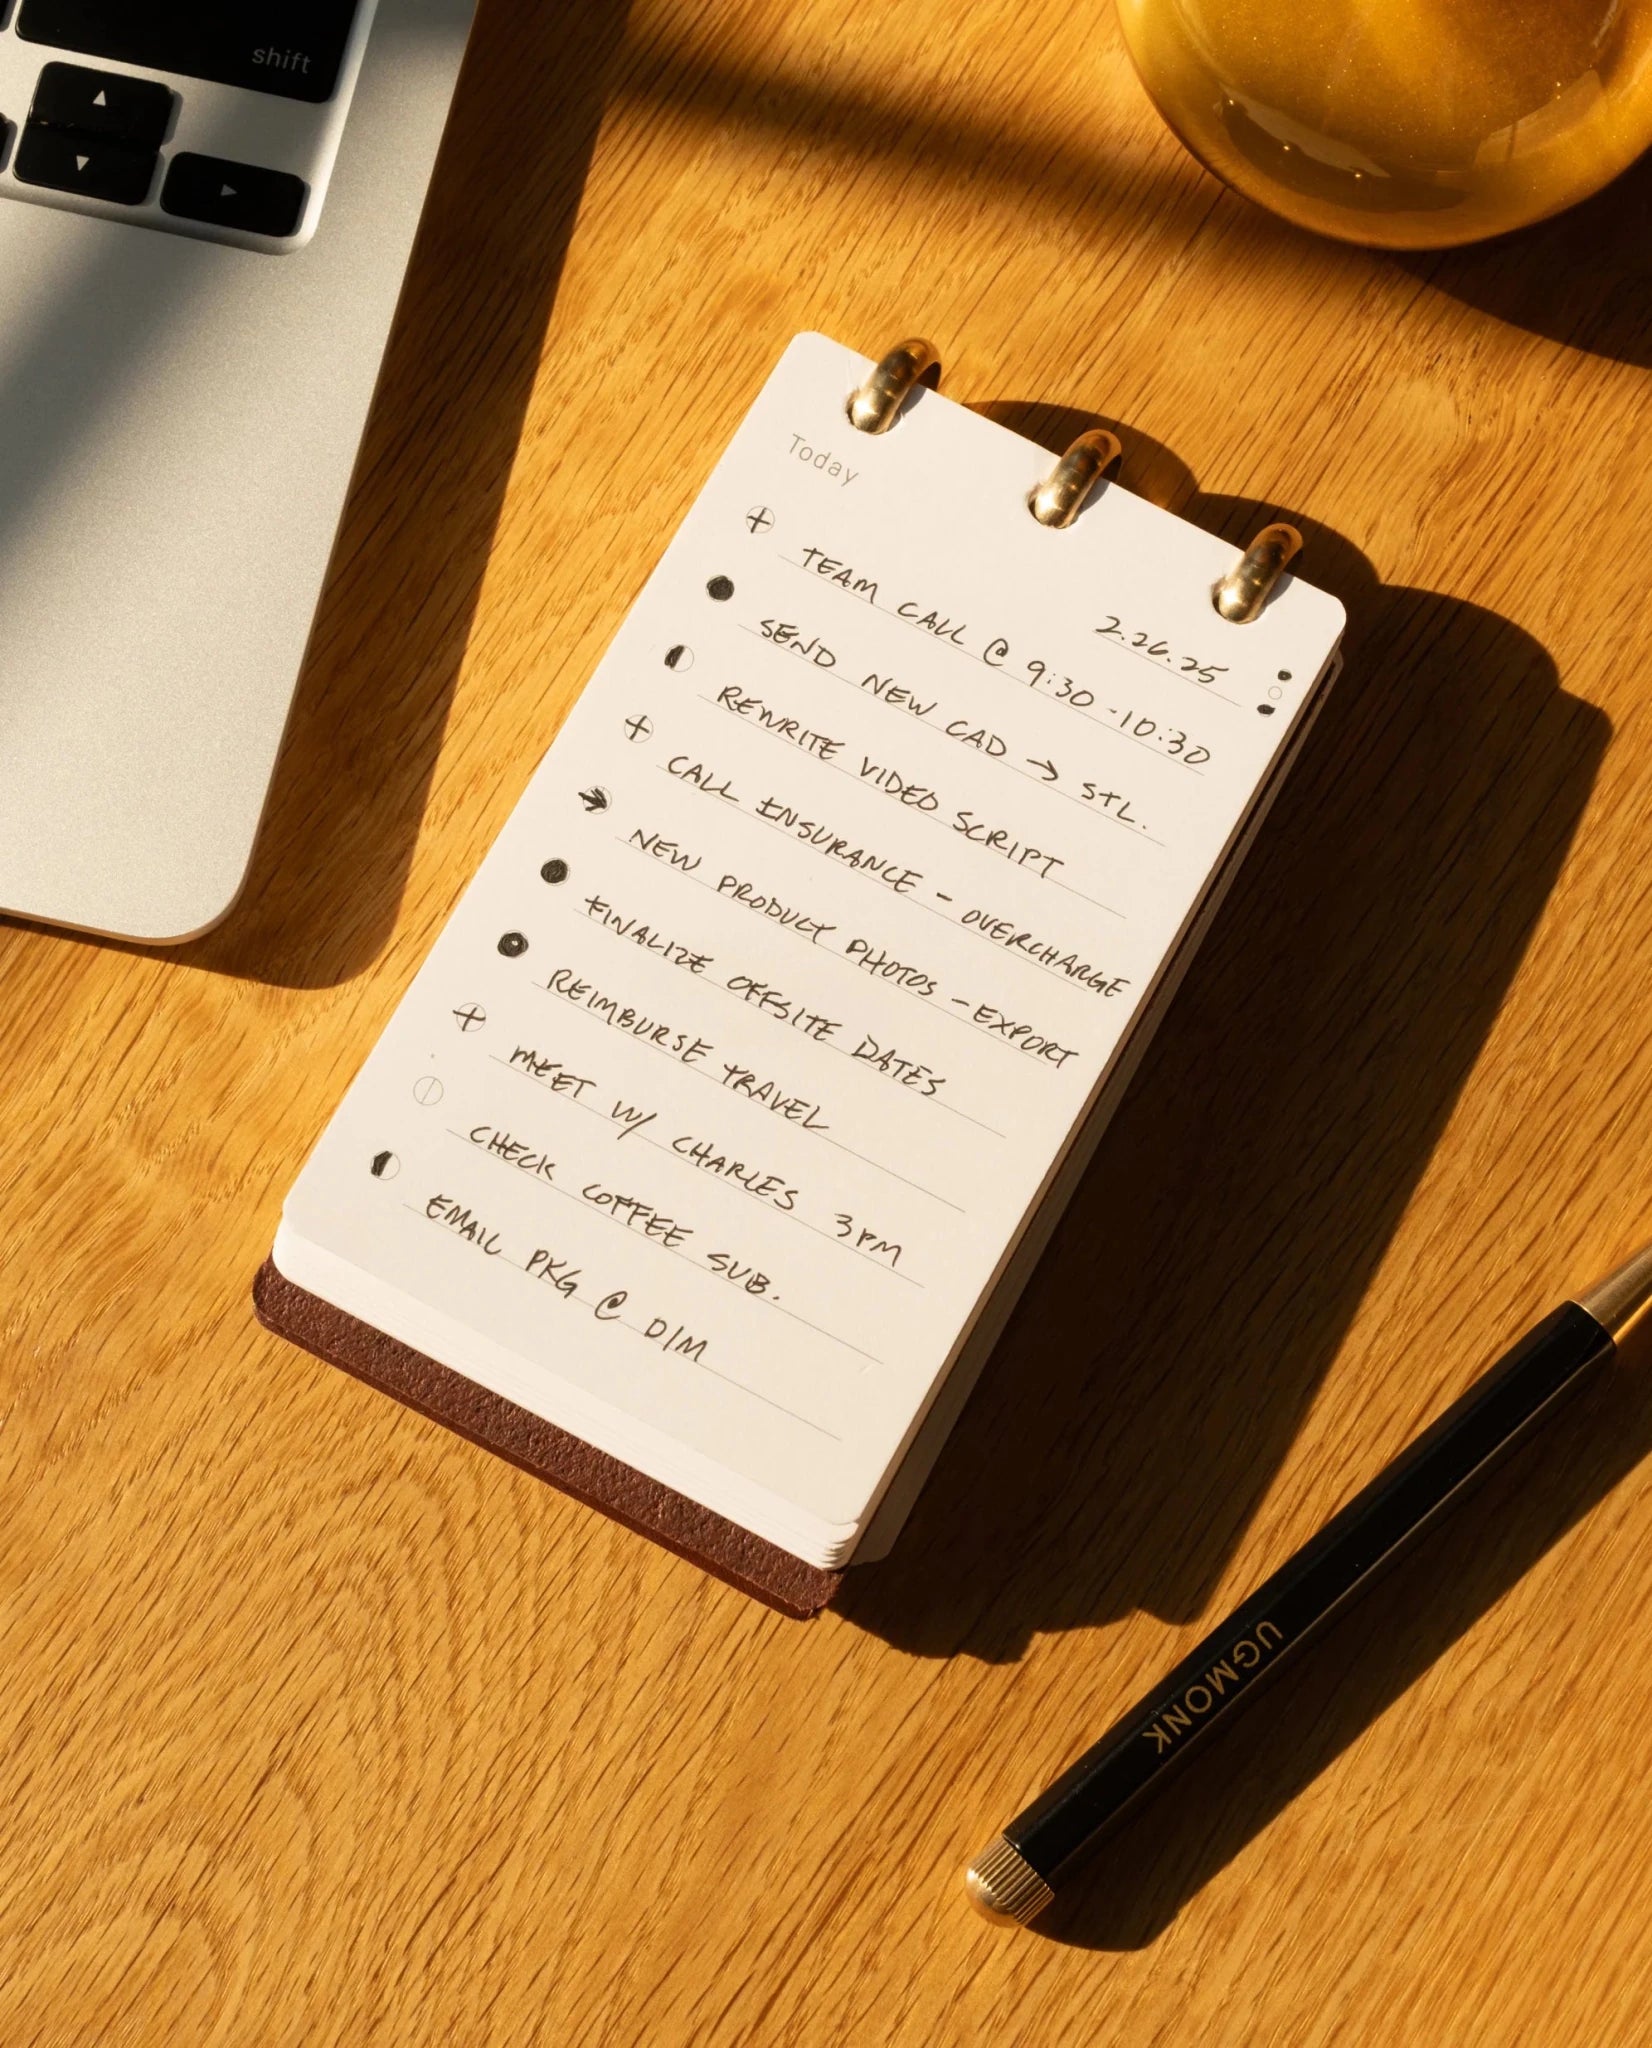 shift
Today
2.26.25
TEAM CALL @ 9:30 - 10:30
SEND NEW CAD → STL.
REWRITE VIDEO SCRIPT
CALL INSURANCE - OVERCHARGE
NEW PRODUCT PHOTOS - EXPORT
FINALIZE OFFSITE DATES
REIMBURSE TRAVEL
MEET W/ CHARLES 3PM
CHECK COFFEE SUB.
EMAIL PKG @ D/M
UGMONK